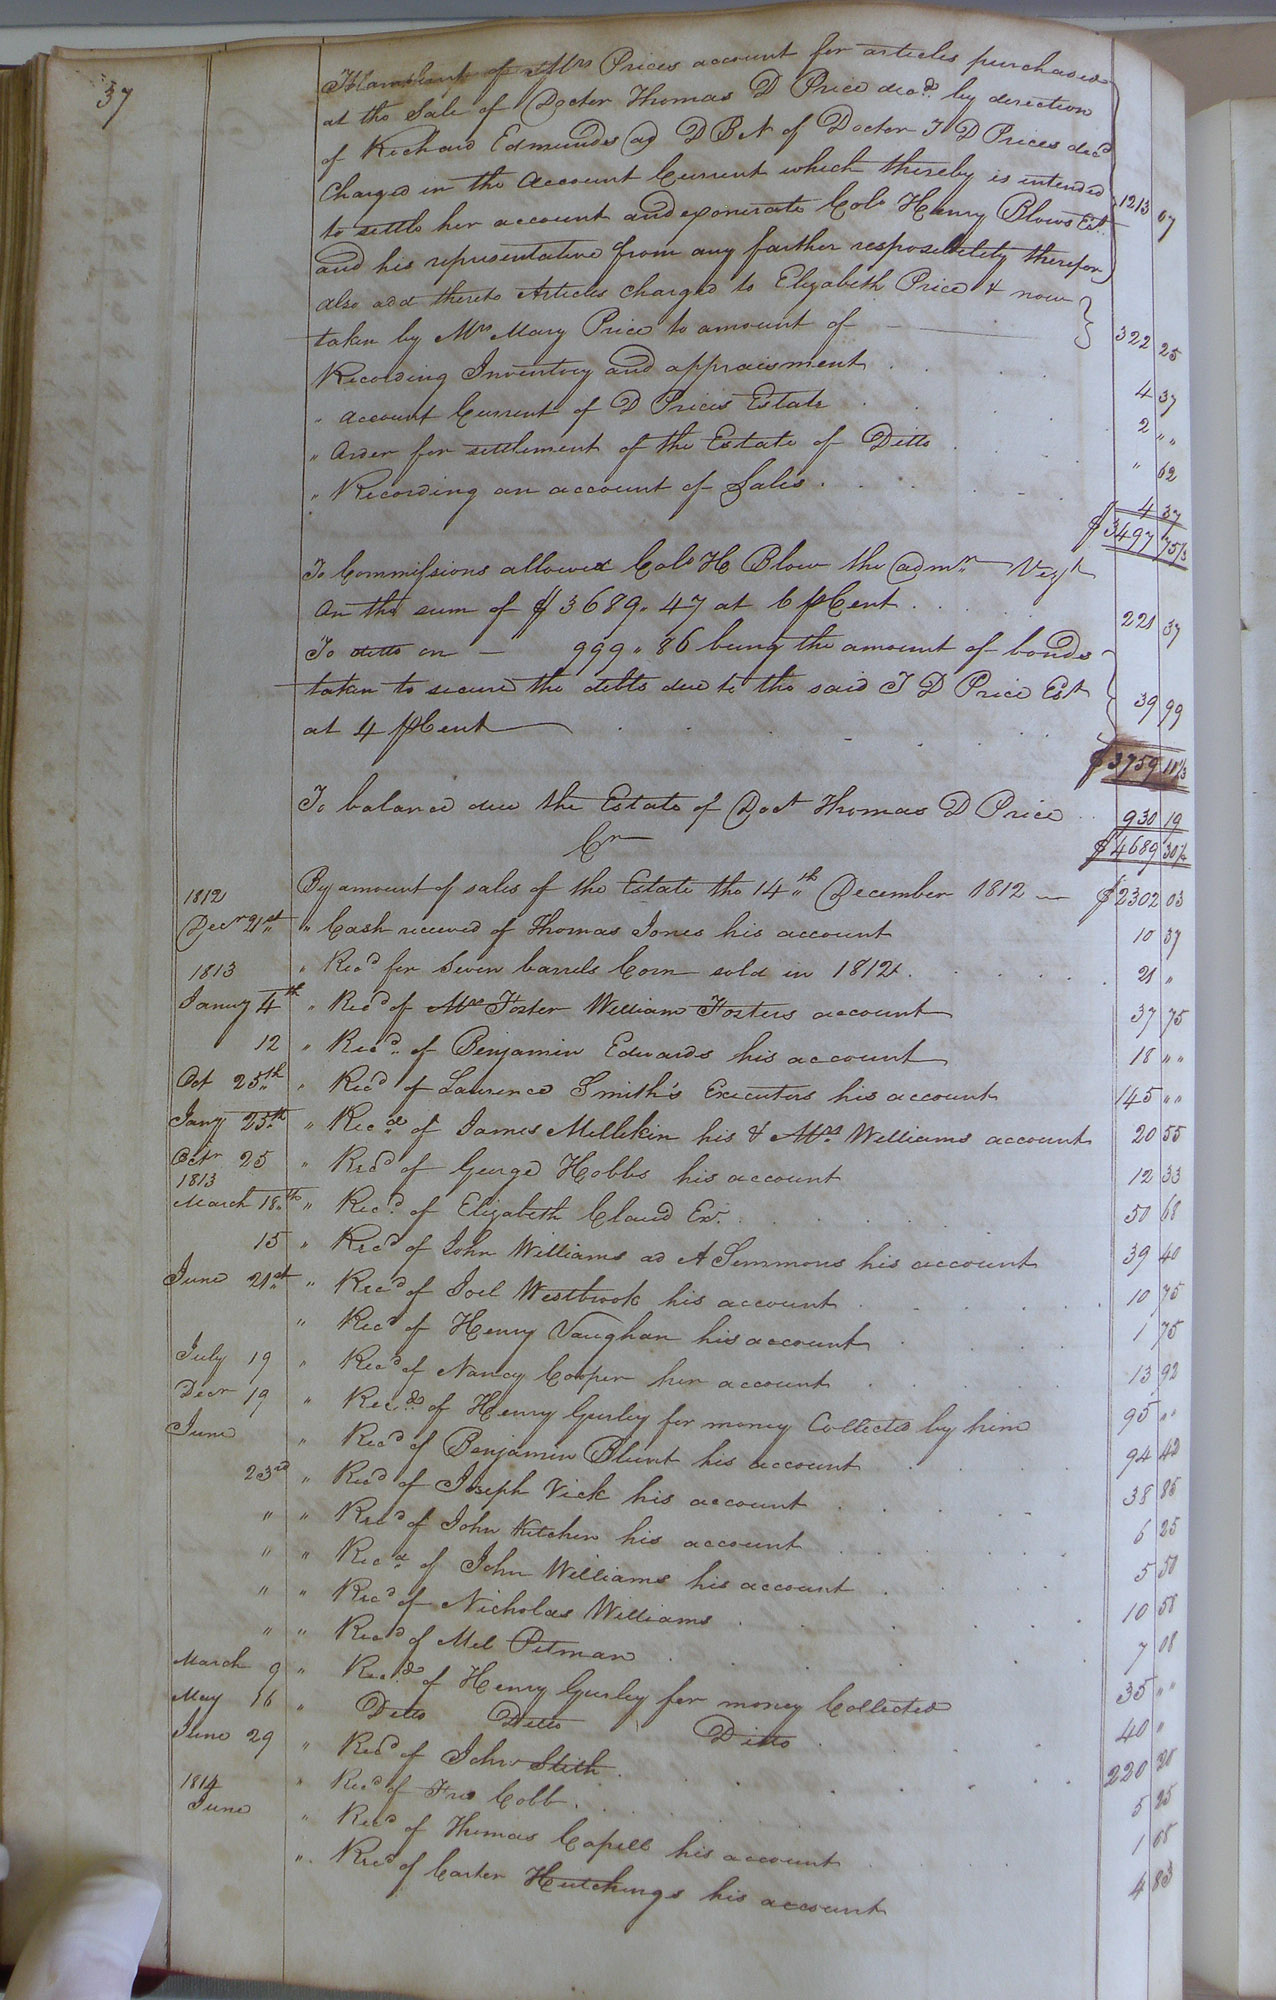 37
of Mrs Prices account for articles purchased
at the Sale of Docter Thomas D Price decd. by direction
of Richard Edmunds ad D B N of Docter T D Prices decd
Charged in the Account Current which thereby is intended
to settle her account and exonerate Colo Henry Blows Est. 1213 07
and his representative from any farther resposebility therefor
also add thereto Articles charged to Elizabeth Price & now
taken by Mrs Mary Price to amount of 322 25
Recording Inventory and appraisment 4 37
" Account Current of D Prices Estate 2 " "
" Order for settlement of the Estate of Ditto " 62
" Recording an account of Sales 4 37
$3497 75/3
To Commissions allowed Colo H Blow the admr. Vizt
On the sum of $3689.47 at 6 pCent 221 37
To ditto on — 999.86 being the amount of bonds
taken to secure the debts due to the said T D Price Est
at 4 pCent 39 99
$3759 11/3
To balance due the Estate of Doct Thomas D Price 930 19
$4689 30/4
Cr
1812 By amount of sales of the Estate the 14th December 1812 — $2302 03
Decr 21st " Cash received of Thomas Jones his account 10 37
1813 " Recd for Seven barrels Corn sold in 1812 21 "
Janury 4th " Recd of Mrs Foster William Fosters account 37 75
12 " Recd. of Benjamin Edwards his account 18 " "
Oct 25th " Recd of Laurence Smith's Executors his account 145 " "
Jany 25th " Recd of James Millikin his & Mrs Williams account 20 55
Octr 25 " Recd of George Hobbs his account 12 33
1813
March 18th " Recd. of Elizabeth Claud Ex. 50 68
15 " Recd of John Williams ad A Simmons his account 39 40
June 21st " Recd of Joel Westbrook his account 10 75
" Recd of Henry Vaughan his account 1 75
July 19 " Recd of Nancy Cooper her account 13 92
Decr 19 " Recd. of Henry Gurley for money Collected by him 95 " "
June " Recd of Benjamin Blunt his account 94 42
23rd " Recd of Joseph Vick his account 38 86
" " Recd of John Kitchen his account 6 25
" " Recd of John Williams his account 5 50
" " Recd of Nicholas Williams 10 58
" " Recd of Mel Pitman 7 08
March 9 " Recd. of Henry Gurley for money Collected 35 " "
May 16 " Ditto Ditto Ditto 40 "
June 29 " Recd of John Stith 220 28
1814 " Recd of Cobb 5 25
June " Recd of Thomas Capell his account 1 08
" Recd of Carter Hutchings his account 4 83